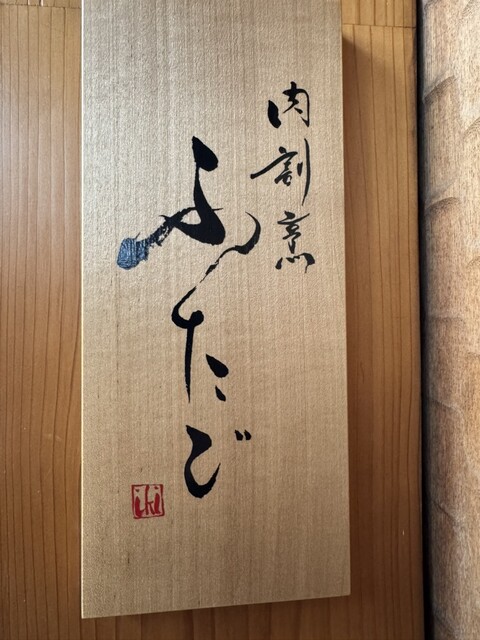 肉割烹
ふたご
iki